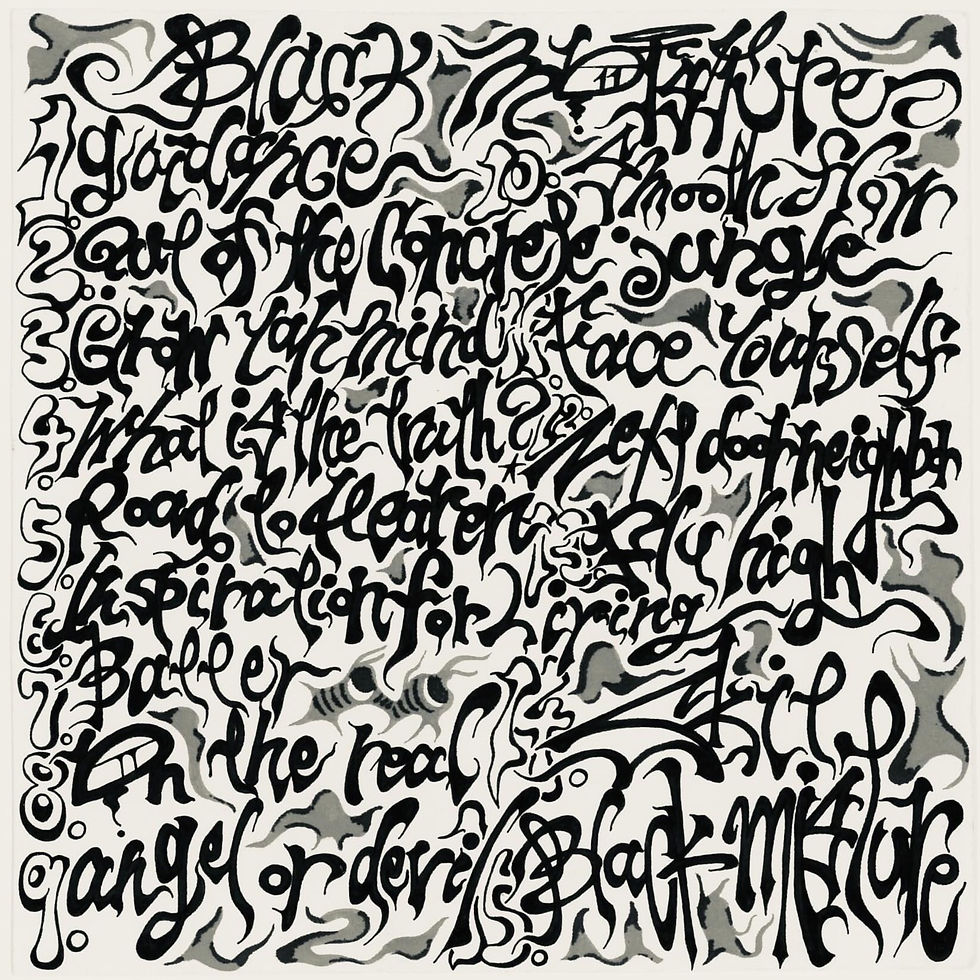 Black
1 guidance 10. Smooth flow
2. Out of the Concrete jungle
3. Grow yah mind 11. Face Yourself
4. What is the truth? 12. Next door neighbor
5. Road to Heaven 13. Fly high
6. Inspiration for Living
7. Baller
8. On the real
9. angel or devil 15. Black mixture